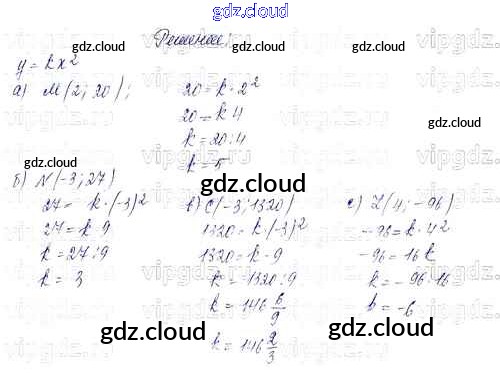 gdz.cloud
Решение:
gdz.cloud
gdz.cloud
y = kx²
а) M(2; 20);
20 = k · 2²
20 = k 4
k = 20 : 4
k = 5
gdz.cloud
gdz.cloud
gdz.cloud
б) N(-3; 27)
27 = k · (-3)²
27 = k 9
k = 27 : 9
k = 3
в) C(-3; 1320)
1320 = k · (-3)²
1320 = k · 9
k = 1320 : 9
k = 146 6/9
k = 146 2/3
г) L(4; -96)
-96 = k · 4²
-96 = 16k
k = -96 : 16
k = -6
gdz.cloud
gdz.cloud
gdz.cloud
gdz.cloud